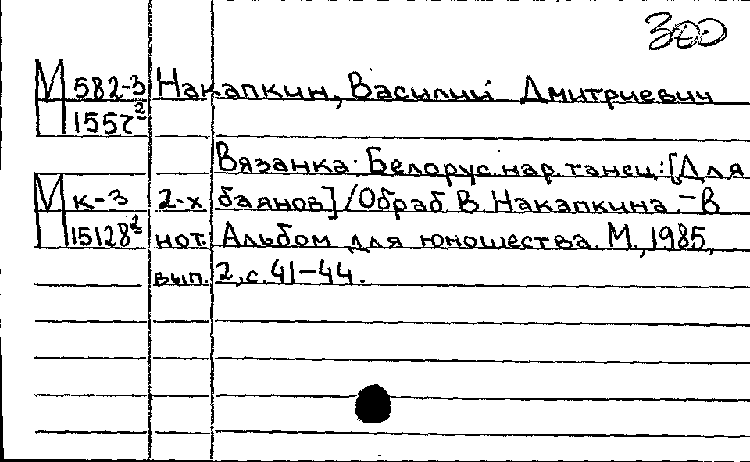 300
М 582-3 Накапкин, Василий Дмитриевич
1557²
Вязанка: Белорус. нар. танец: [Для
М к-3 2-х баянов] / Обраб. В. Накапкина. - В
15128² нот. Альбом для юношества. М., 1985,
вып. 2, с. 41-44.